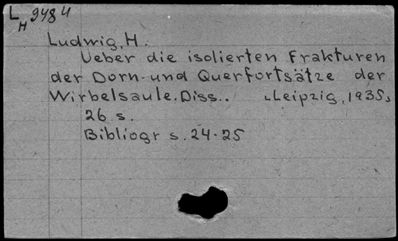 L 948 u
H
Ludwig, H.
Ueber die isolierten Frakturen
der Dorn- und Querfortsätze der
Wirbelsaule. Diss.. Leipzig, 1935,
26 s.
Bibliogr s. 24-25